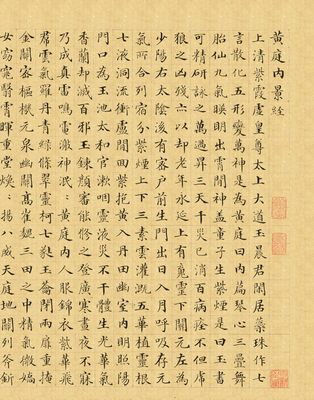 黃庭內景經
上清紫霞虛皇尊太上大道玉晨君閒居蘂珠作七
言散化五形變萬神是為黃庭曰內篇琴心三疊舞
胎仙九氣映明出霄間神蓋童子生紫煙是曰玉書
可精研詠之萬過昇三天千災已消百病痊不但席
狼之凶殘亦以却老年永延上有魂靈下關元左為
少陽右太陰後有密戶前生門出日入月呼吸存元
氣所合列宿分紫煙上下三素雲灌溉五華植靈根
七液洞流衝廬間迴紫抱黃入丹田幽室內明照陽
門口為玉池太和官漱咽靈液災不干體生光華氣
香蘭却滅百邪玉鍊顏審能修之登廣寒晝夜不寐
乃成真雷鳴電激神泯〻黃庭內人服錦衣紫華飛
羣雲氣羅丹青綠條翠靈柯七蕤玉籥閉兩扉重掩
金關密樞機元泉幽關高崔巍三田之中精氣微嬌
女窈窕翳霄暉重堂煥〻揚八威天庭地關列斧斤